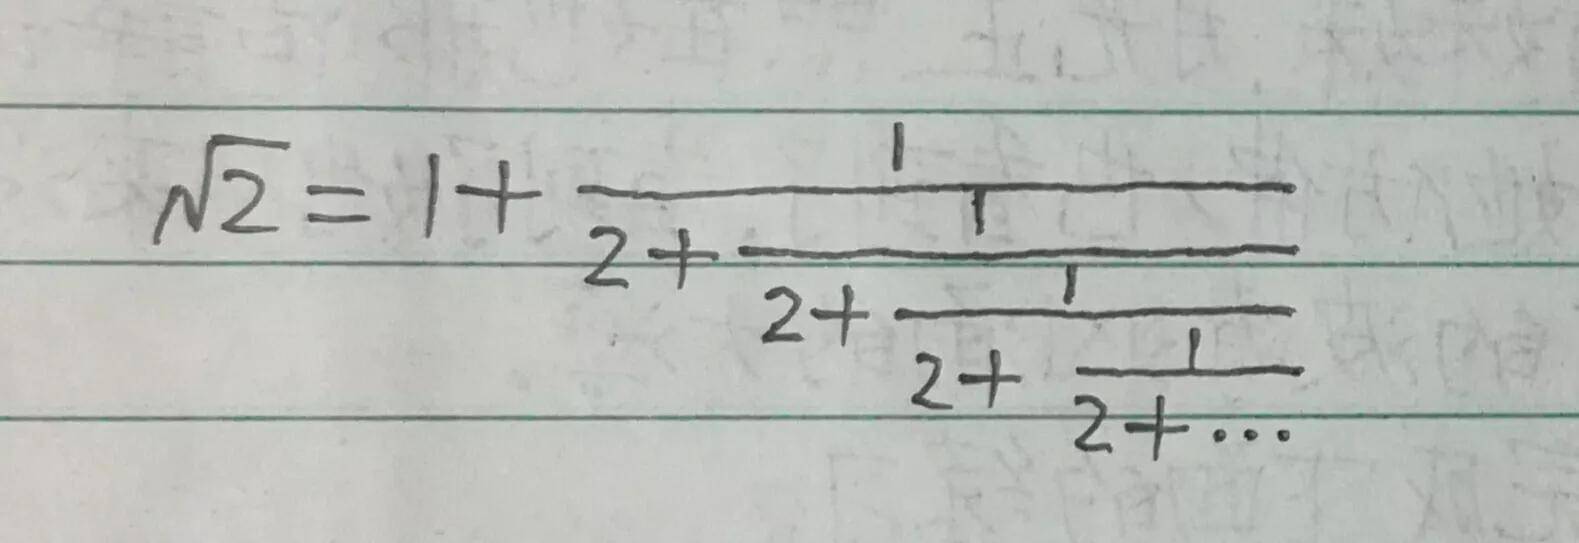 √2 = 1 + 1/(2 + 1/(2 + 1/(2 + 1/(2 + ···))))